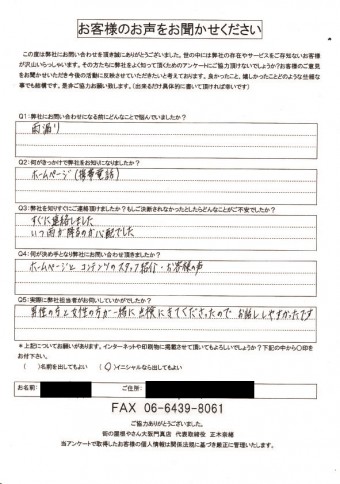 お客様のお声をお聞かせください
この度は弊社にお問い合わせを頂き誠にありがとうございました。世の中には弊社の存在やサービスをご存知ないお客様
が沢山いらっしゃいます。その方たちに弊社をよく知って頂くためのアンケートにご協力頂けないでしょうか？お客様のご意見
をお聞かせいただき今後の活動に反映させていただきたいと考えております。良かったこと、嬉しかったことどのような些細な
事でも結構です。是非ご協力お願い致します。（出来るだけ具体的に書いて頂ければ幸いです）
Q1：弊社にお問い合わせになる前にどんなことで悩んでいましたか？
雨漏り
Q2：何がきっかけで弊社をお知りになりましたか？
ホームページ（携帯電話）
Q3：弊社を知りすぐにご連絡頂けましたか？もしご決断されなかったとしたらどんなことがご不安でしたか？
すぐに連絡しました
いつ雨が降るのか心配でした
Q4：何が決め手となり弊社にお問い合わせ頂けましたか？
ホームページと コンテンツのスタッフ紹介・お客様の声
Q5：実際に弊社担当者がお伺いしていかがでしたか？
男性の方と女性の方が一緒に点検にきてくださったので お話ししやすかったです
＊上記についてお願いがあります。インターネットや印刷物に掲載させて頂いてもよろしいでしょうか？下記の中から○印を
お付下さい。
（ ）名前を出してもよい （○）イニシャルなら出してもよい
お名前： ご住所：
FAX 06-6439-8061
ご協力ありがとうございました。
街の屋根やさん大阪門真店 代表取締役 正木奈緒
当アンケートで取得したお客様の個人情報は関係法規に基づき厳正に管理いたします。